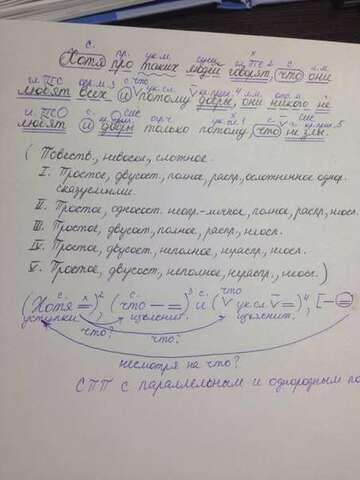 с. пр. ук.м. сущ. гл. ПС 2 с. л.м.
Хотя про таких людей говорят, что они
гл. ПГС опр.м. 3 с. что ук.сл. кр.прил. 4 л.м. отр.м.
любят всех и потому добры, они никого не
гл. ПГС с. кр.прил. СИС ук.сл. 1 с. СИС кр.прил. 5
любят и добры только потому, что не злы.
( Повеств., невоскл., сложное.
I. Простое, двусост., полное, распр., осложненное однор.
сказуемыми.
II. Простое, односост. неопр.-личное, полное, распр., неосл.
III. Простое, двусост., полное, распр., неосл.
IV. Простое, двусост., неполное, нераспр., неосл.
V. Простое, двусост., неполное, нераспр., неосл. )
(Хотя =)², (что – =)³ и (ук.сл. =)⁴, [ – =
уступки изъяснит. что изъяснит.
что? что?
несмотря на что?
СПП с параллельным и однородным по